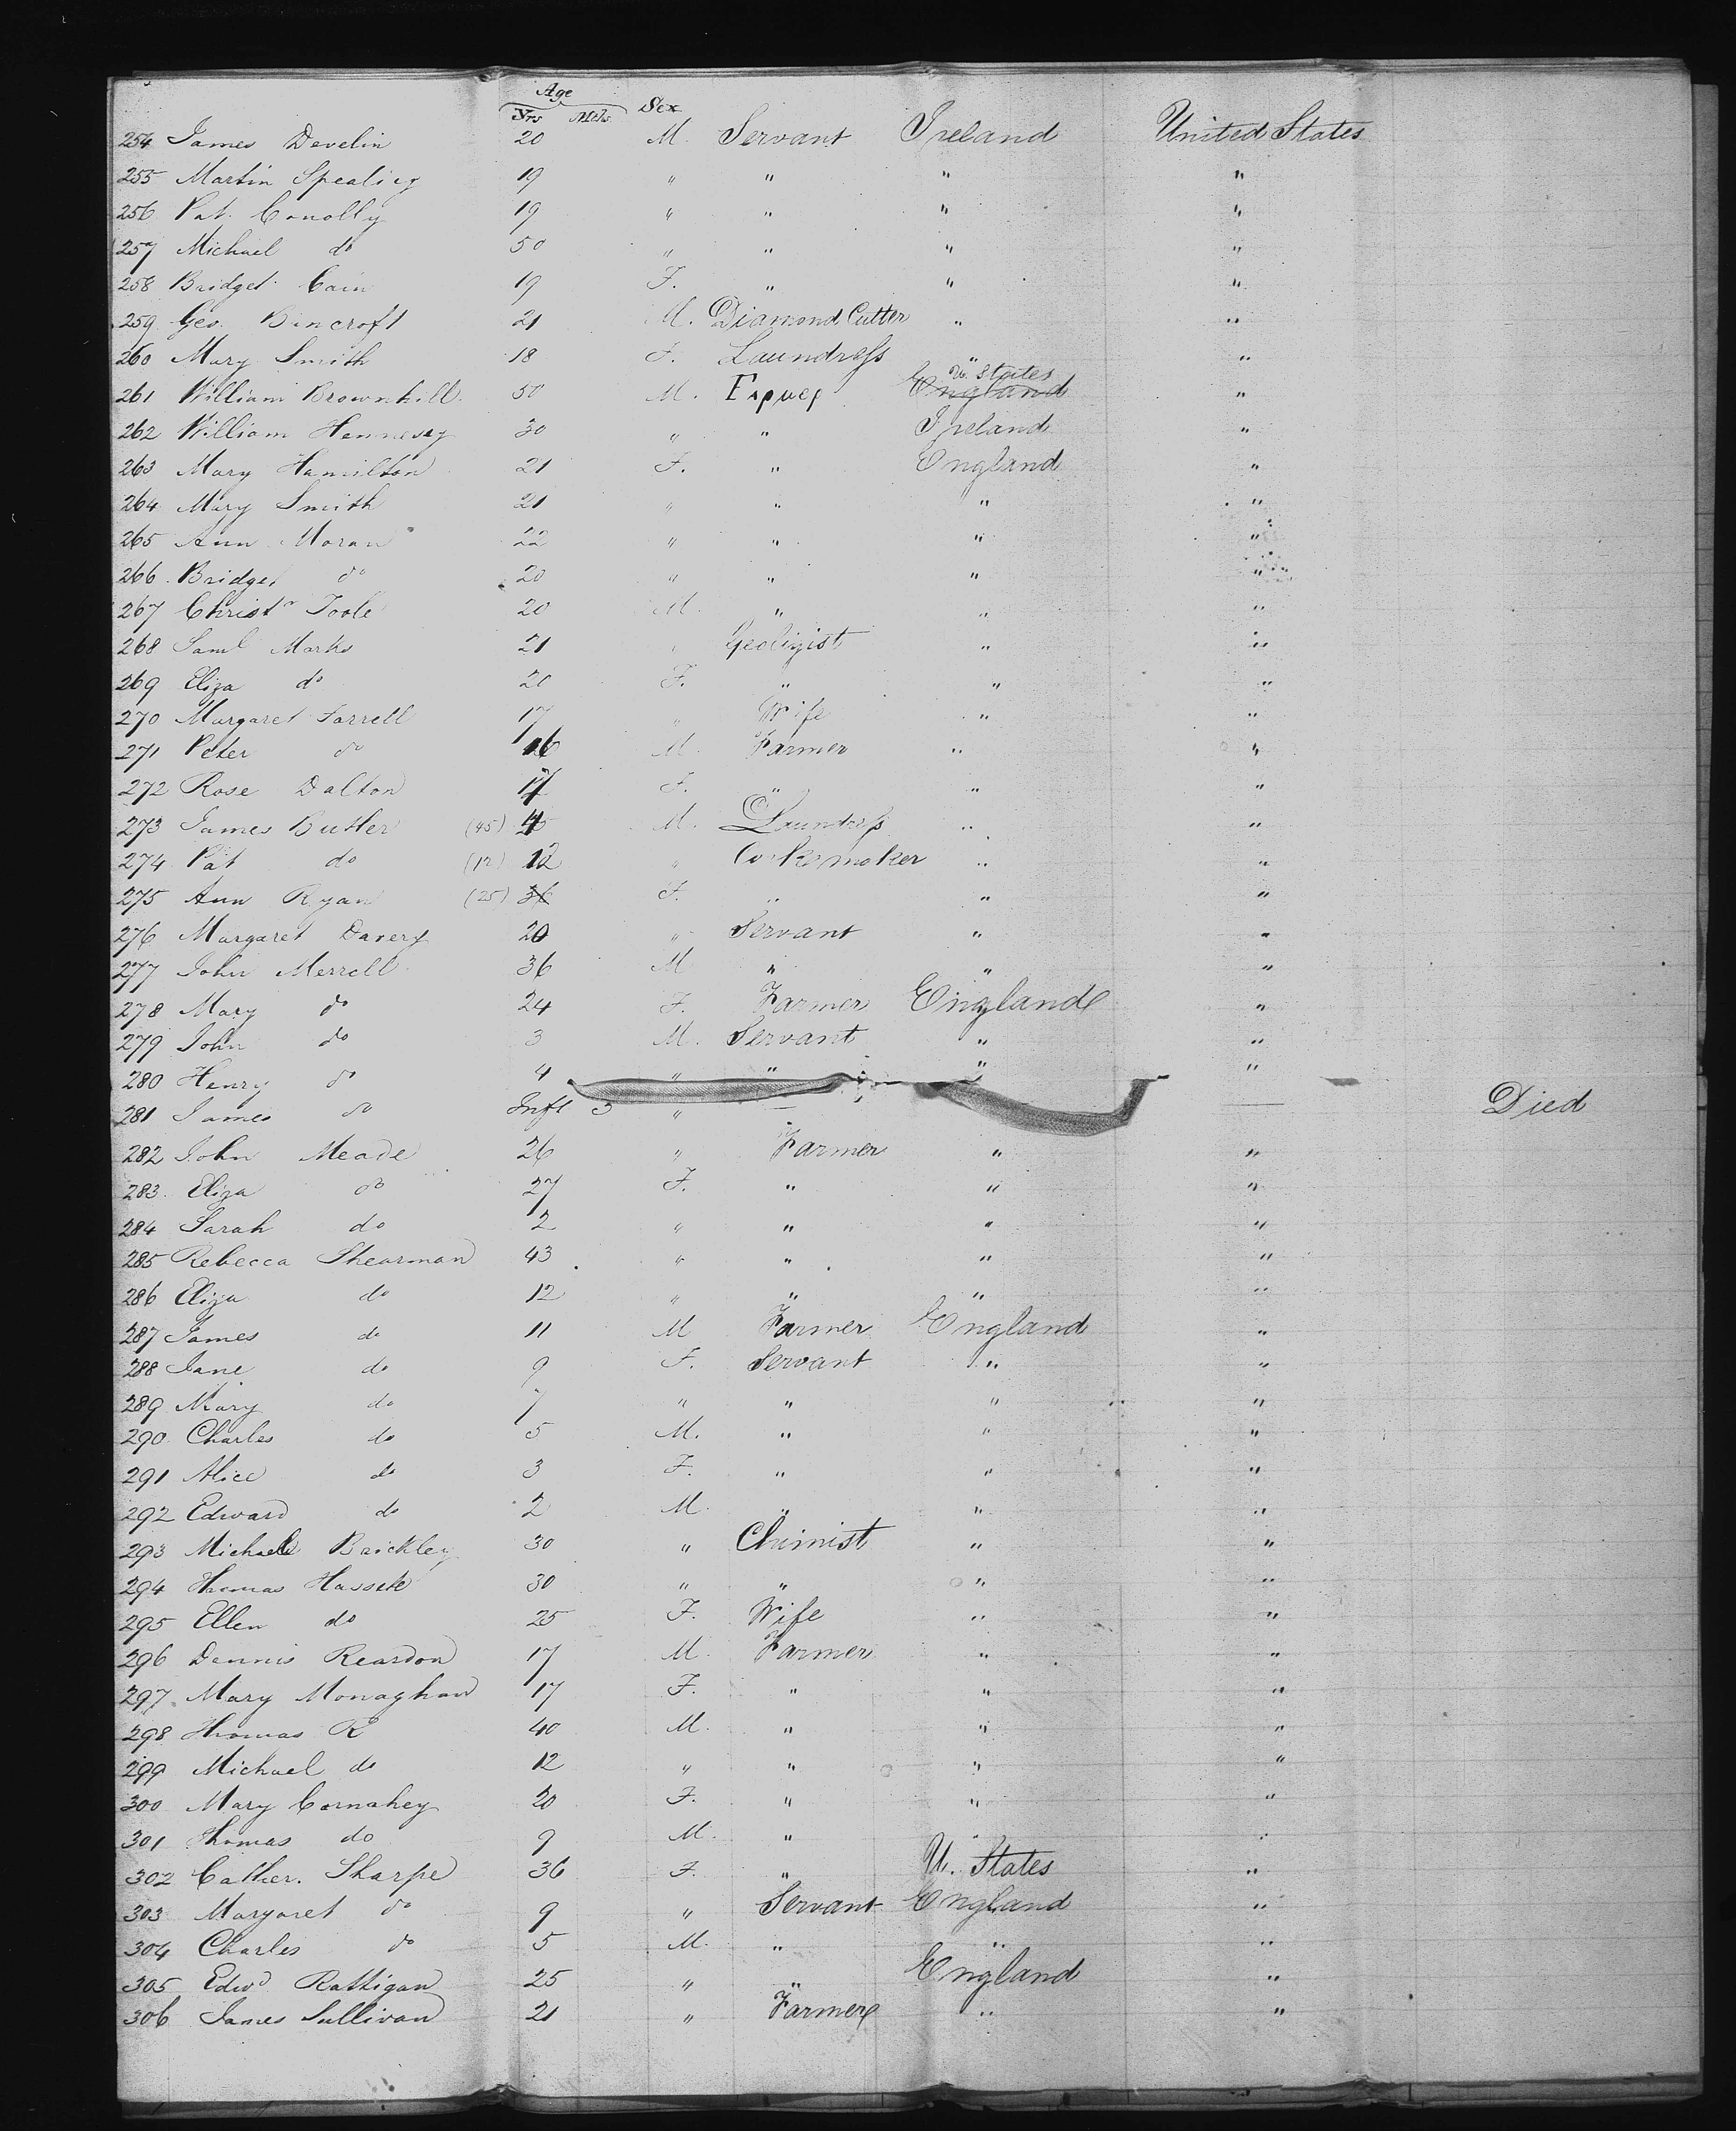 Age
Yrs Mths Sex
254 James Develin 20 M. Servant Ireland United States
255 Martin Spealicy 19 " " " "
256 Pat. Conolly 19 " " " "
257 Michael do 50 " " " "
258 Bridget Cain 19 F. " " "
259 Geo. Bincroft 21 M. Diamond Cutter " "
260 Mary Smith 18 F. Laundress " "
U. States
261 William Brownhill 50 M. England "
262 William Hennessy 30 " " Ireland "
263 Mary Hamilton 21 F. " England "
264 Mary Smith 21 " " " "
265 Ann Moran 22 " " " "
266 Bridget do 20 " " " "
267 Christr Toole 20 M. " " "
268 Saml Marks 21 " Geoligist " "
269 Eliza do 20 F. " " "
270 Margaret Farrell 17 " Wife " "
271 Peter do 16 M. Farmer " "
272 Rose Dalton 17 F. " " "
273 James Butler (45) 45 M. Laundress " "
274 Pat do (12) 12 " " "
275 Ann Ryan (25) 36 F. " " "
276 Margaret Davery 20 " Servant " "
277 John Merrell 36 M " " "
278 Mary do 24 F. Farmer England "
279 John do 3 M. Servant " "
280 Henry do 4 " " " "
281 James do Inft 3 " — — Died
282 John Meade 26 " Farmer " "
283 Eliza do 27 F. " " "
284 Sarah do 2 " " " "
285 Rebecca Shearman 43 " " " "
286 Eliza do 12 " " " "
287 James do 11 M Farmer England "
288 Jane do 9 F. Servant " "
289 Mary do 7 " " " "
290 Charles do 5 M. " " "
291 Alice do 3 F. " " "
292 Edward do 2 M. " " "
293 Michael Brickley 30 " Chimist " "
294 Thomas Hassett 30 " " " "
295 Ellen do 25 F. Wife " "
296 Dennis Reardon 17 M. Farmer " "
297 Mary Monaghan 17 F. " " "
298 Thomas R 40 M. " " "
299 Michael do 12 " " " "
300 Mary Cornahey 20 F. " " "
301 Thomas do 9 M. " " "
302 Cather. Sharpe 36 F. " U. States "
303 Margaret do 9 " Servant England "
304 Charles do 5 M. " " "
305 Edwd Rattigan 25 " " England "
306 James Sullivan 21 " Farmer " "